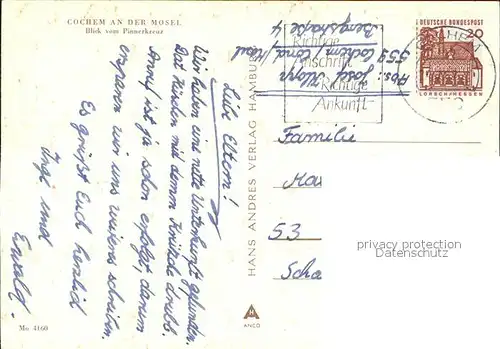 COCHEM AN DER MOSEL
Blick vom Pinnerkreuz
Liebe Eltern!
Wir haben eine nette Unterkunft gefunden.
Das Hirschen mit dem
Anruf ist ja schon erfolgt, darum
ersparen wir uns weiteres schreiben.
Es grüßt Euch herzlich
Ingi und
Ewald.
Mo 4160
HANS ANDRES VERLAG HAMBURG
ANCO
Abs.: Josef Klopp
559 Cochem / Cond / Mosel
Bergstraße 4
Richtige
Anschrift
Richtige
Ankunft
DEUTSCHE BUNDESPOST
20
LORSCH/HESSEN
Familie
Ma
53
Scha
privacy protection
Datenschutz